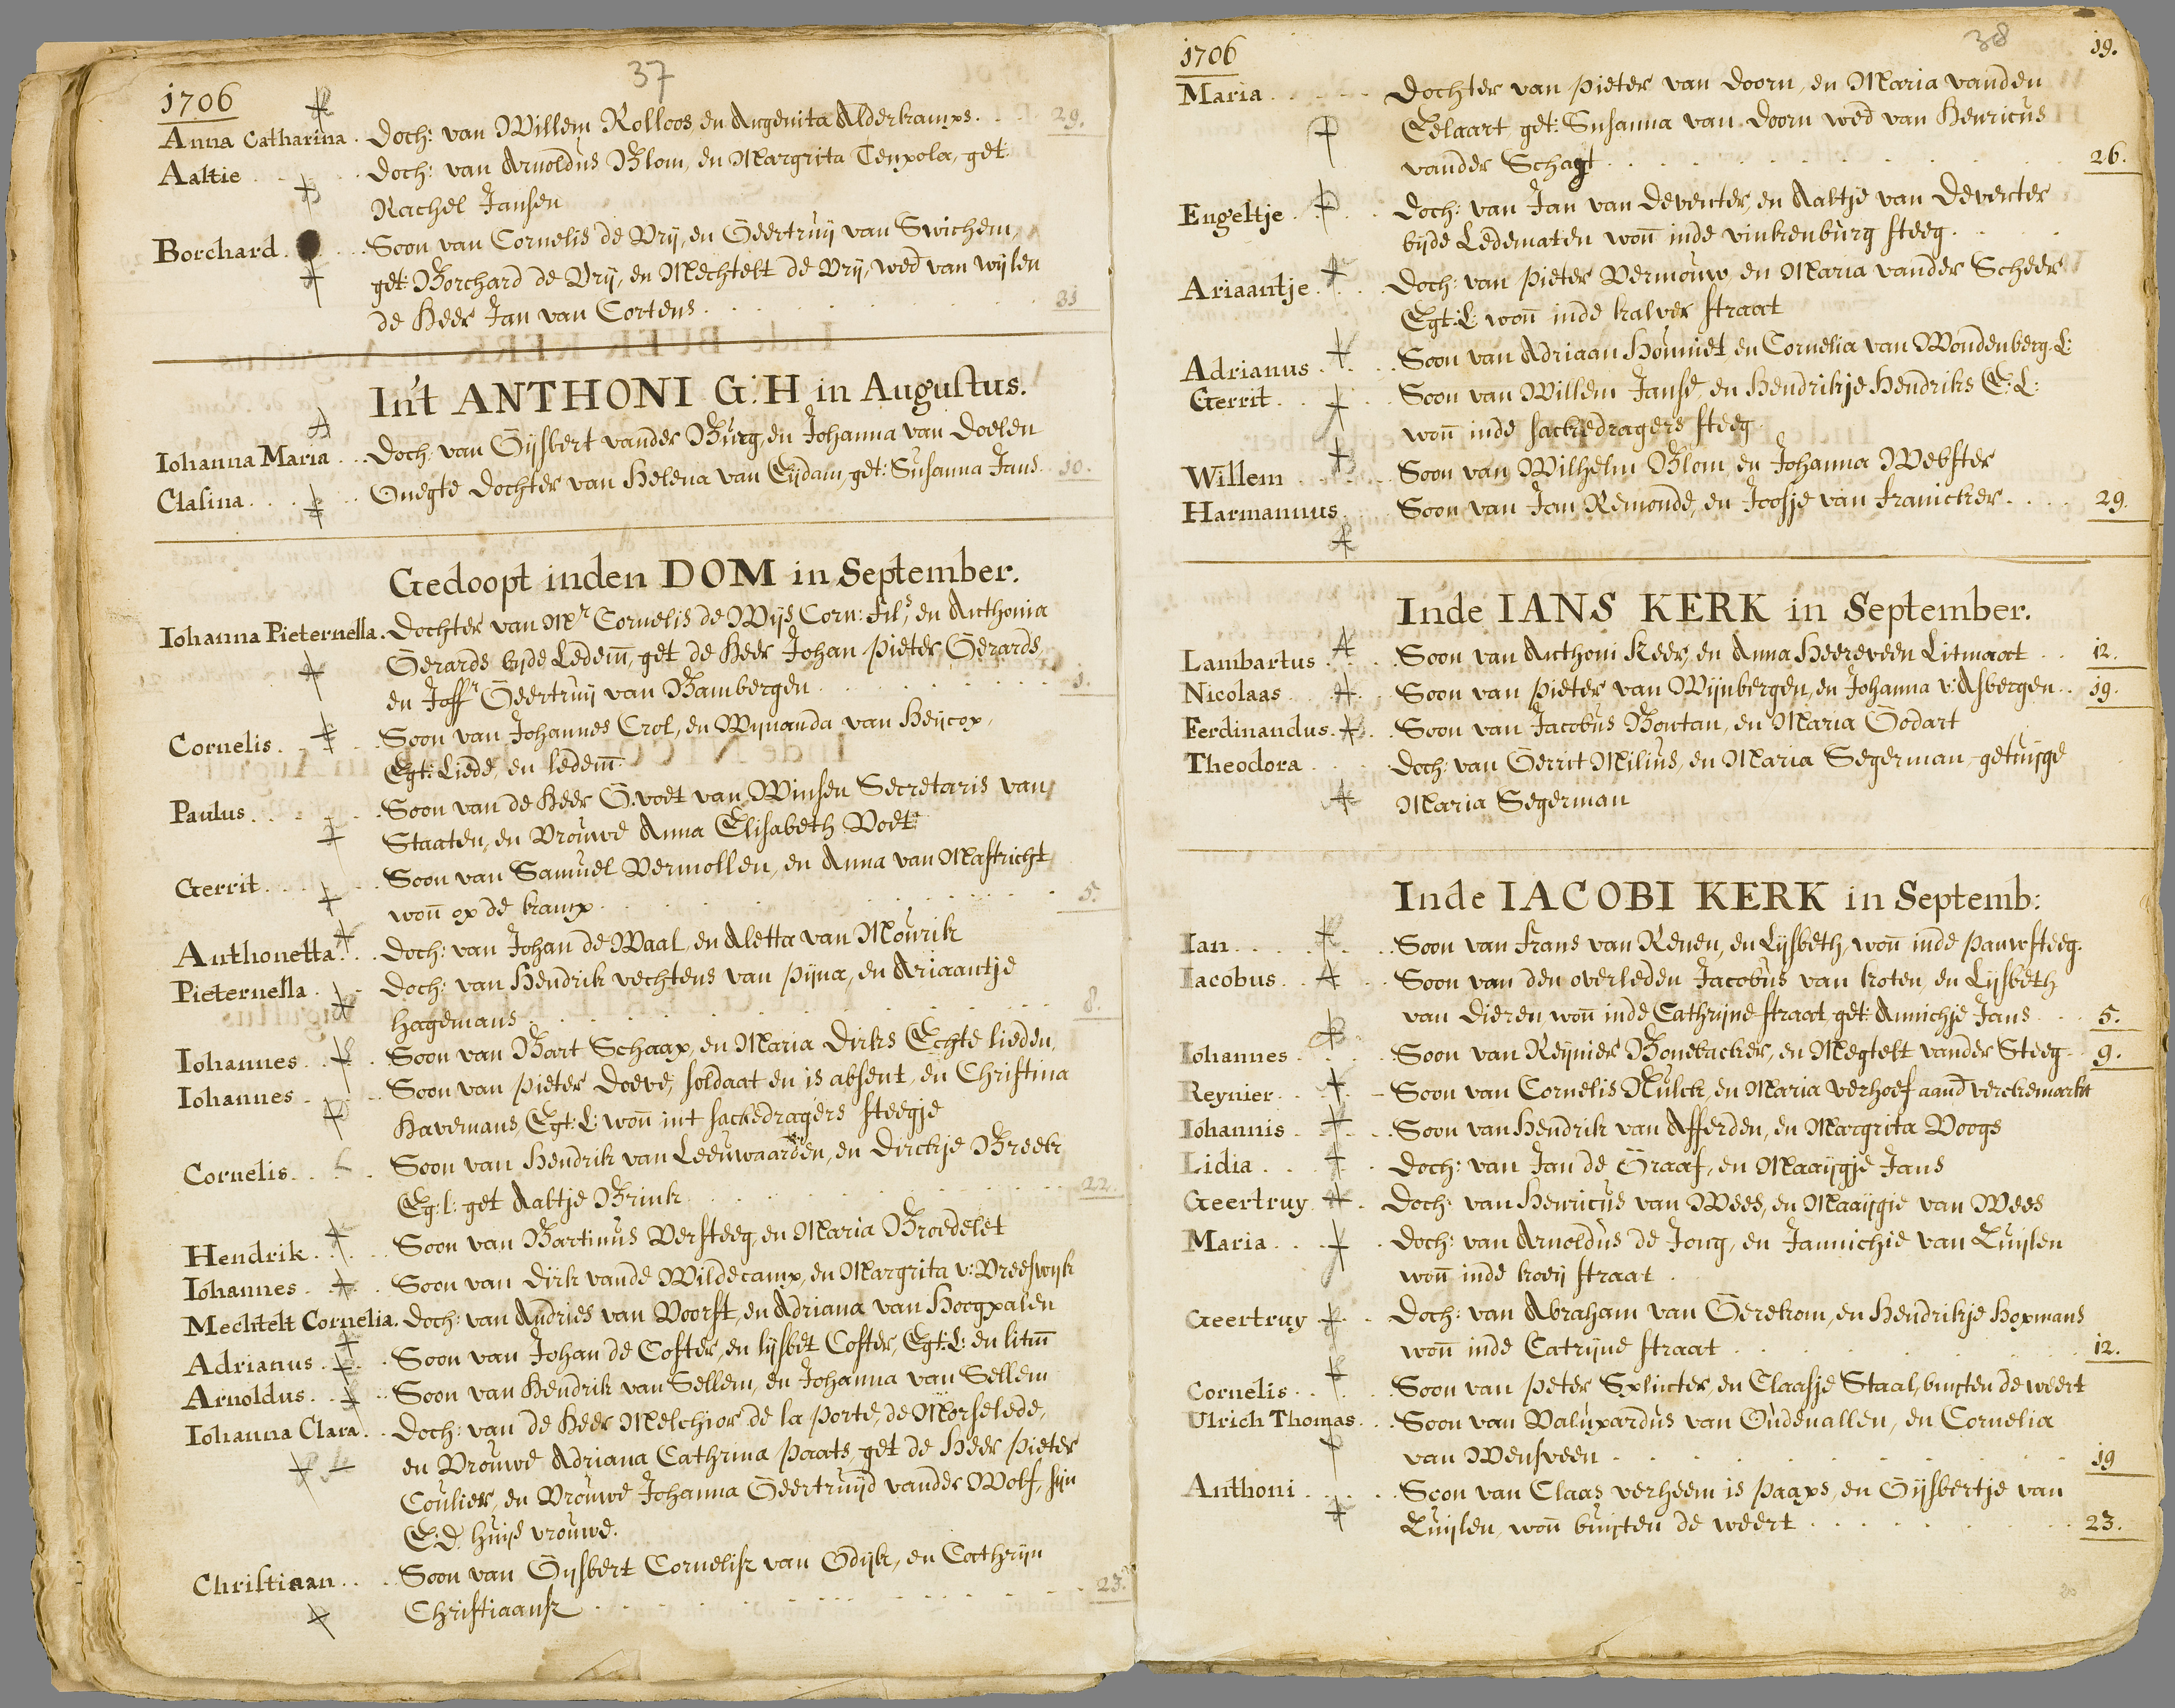 37
1706
Anna Catharina . Doch: van Willem Rolloos, en Angenita Alderkamps. . . 29.
Aaltie . . . . . Doch: van Arnoldus Blom, en Margrita Tenpola, get:
Rachel Jansen
Borchard . . . Soon van Cornelis de Vrij, en Geertruij van Swichem,
get: Borchard de Vrij, en Mechtelt de Vrij, wed van wijlen
de Heer Jan van Cortens . . . . . 31
In't ANTHONI G:H in Augustus.
Iohanna Maria . . Doch: van Gijsbert vander Burg, en Johanna van Doelen
Clasina . . . . . Onegte Dochter van Helena van Eijdam, get: Susanna Jans . 10.
Gedoopt inden DOM in September.
Iohanna Pieternella . Dochter van Mr Cornelis de Wijs, Corn: Fils, en Anthonia
Gerards bijde Ledem, get de Heer Johan Pieter Gerards,
en Joffr Geertruij van Bambergen . . . . . 1.
Cornelis . . . . Soon van Johannes Crol, en Wijnanda van Heijcop,
Egt: Liede, en ledem
Paulus . . . . . Soon van de Heer G. voet van Winsen Secretaris van
Staaten, en Vrouwe Anna Elisabeth Voet
Gerrit . . . . . Soon van Samuel Vermollen, en Anna van Mastricht
won op de kamp . . . . . 5.
Anthonetta . . . Doch: van Johan de Waal, en Aletta van Mourik
Pieternella . . Doch: van Hendrik vechtens van Pijna, en Ariaantje
Hagemans . . . . . 8.
Iohannes . . . . Soon van Bart Schaap, en Maria Dirks Echte lieden,
Iohannes . . . . Soon van Pieter Doeve, soldaat en is absent, en Christina
Havemans, Egt: L: won int sackedragers steegje
Cornelis . . . . Soon van Hendrik van Leeuwaarden, en Dirckje Breek
Eg: l: get Aaltje Brink . . . . . 22.
Hendrik . . . . Soon van Bartinus Versteeg, en Maria Broedelet
Iohannes . . . . Soon van Dirk vande Wildecamp, en Margrita v: Vreeswijk
Mechtelt Cornelia . Doch: van Andries van Voorst, en Adriana van Hoogpalen
Adrianus . . . . Soon van Johan de Coster, en lijsbet Coster, Egt: L: en litm
Arnoldus . . . . Soon van Hendrik van Sellem, en Johanna van Sellem
Iohanna Clara . . Doch: van de Heer Melchior de la Porte, de Morselede,
en Vrouwe Adriana Cathrina Paats, get de Heer Pieter
Coulier, en Vrouwe Johanna Geertruijd vander Wolf, sijn
E:D: huijs vrouwe.
Christiaan . . . Soon van Gijsbert Cornelisz van Odijk, en Cathrijn
Christiaansz . . . . . 23.
38
1706 19.
Maria . . . . . Dochter van Pieter van Doorn, en Maria vanden
Eelaart get: Susanna van Doorn wed van Henricus
vander Schagt . . . . . 26.
Engeltje . . . . Doch: van Jan van Deventer, en Aaltje van Deventer
bijde Ledematen won inde vinkenburg steeg.
Ariaantje . . . Doch: van Pieter Vermouw, en Maria vander Scheer
Egt: L: won inde kalver straat
Adrianus . . . . Soon van Adriaan Houniet en Cornelia van Woudenberg. L:
Gerrit . . . . . Soon van Willem Janse, en Hendrikje Hendriks E: L:
won inde sackedragers steeg.
Willem . . . . . Soon van Wilhelm Blom, en Johanna Webster
Harmannus . . . Soon van Jan Remonde, en Joosje van Franicker . . . . 29.
Inde IANS KERK in September.
Lambartus . . . Soon van Anthoni Keer, en Anna Heereveen Litmaat . . 12.
Nicolaas . . . . Soon van Pieter van Wijnbergen, en Johanna v: Asbergen . . 19.
Ferdinandus . . Soon van Jacobus Boutan, en Maria Godart
Theodora . . . . Doch: van Gerrit Milius, en Maria Segerman - getuijge
Maria Segerman
Inde IACOBI KERK in Septemb:
Ian . . . . . . Soon van Frans van Renen, en Lijsbeth, won inde Pauwsteeg.
Iacobus . . . . Soon van den overleden Jacobus van Koten, en Lijsbeth
van Dieren, won inde Cathrijne straat, get: Annichje Jans . . . 5.
Iohannes . . . . Soon van Reijnier Bonebacker, en Megtelt vander Steeg . . 9.
Reynier . . . . Soon van Cornelis Nulck, en Maria Verhoef aand verckemarkt
Iohannis . . . . Soon van Hendrik van Afferden, en Margrita Voogs
Lidia . . . . . Doch: van Jan de Graaf, en Maaijgje Jans
Geertruy . . . . Doch: van Henricus van Wees, en Maaijgie van Wees
Maria . . . . . Doch: van Arnoldus de Jong, en Jannichie van Luijlen
won inde koeij straat .
Geertruy . . . . Doch: van Abraham van Gerekom, en Hendrikje Hopmans
won inde Catrijne straat . . . . . 12.
Cornelis . . . . Soon van Peter Splinter, en Claasje Staal, buijten de weert
Ulrich Thomas . . Soon van Valupardus van Oudenallen, en Cornelia
van Wensveen . . . . . 19
Anthoni . . . . Soon van Claas verheem is Paaps, en Gijsbertje van
Luijlen, won buijten de weert . . . . . 23.